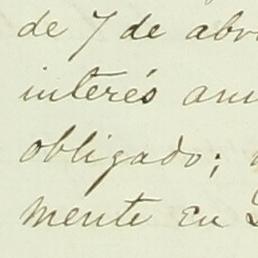 de 7 de abr
interés anu
obligado;
mente en